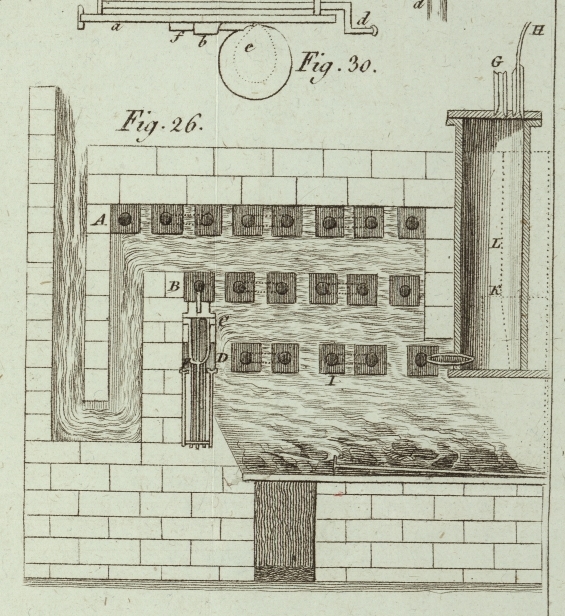 a f b e d d
Fig. 30.
Fig. 26.
G H
A
L
B K
C
D
I